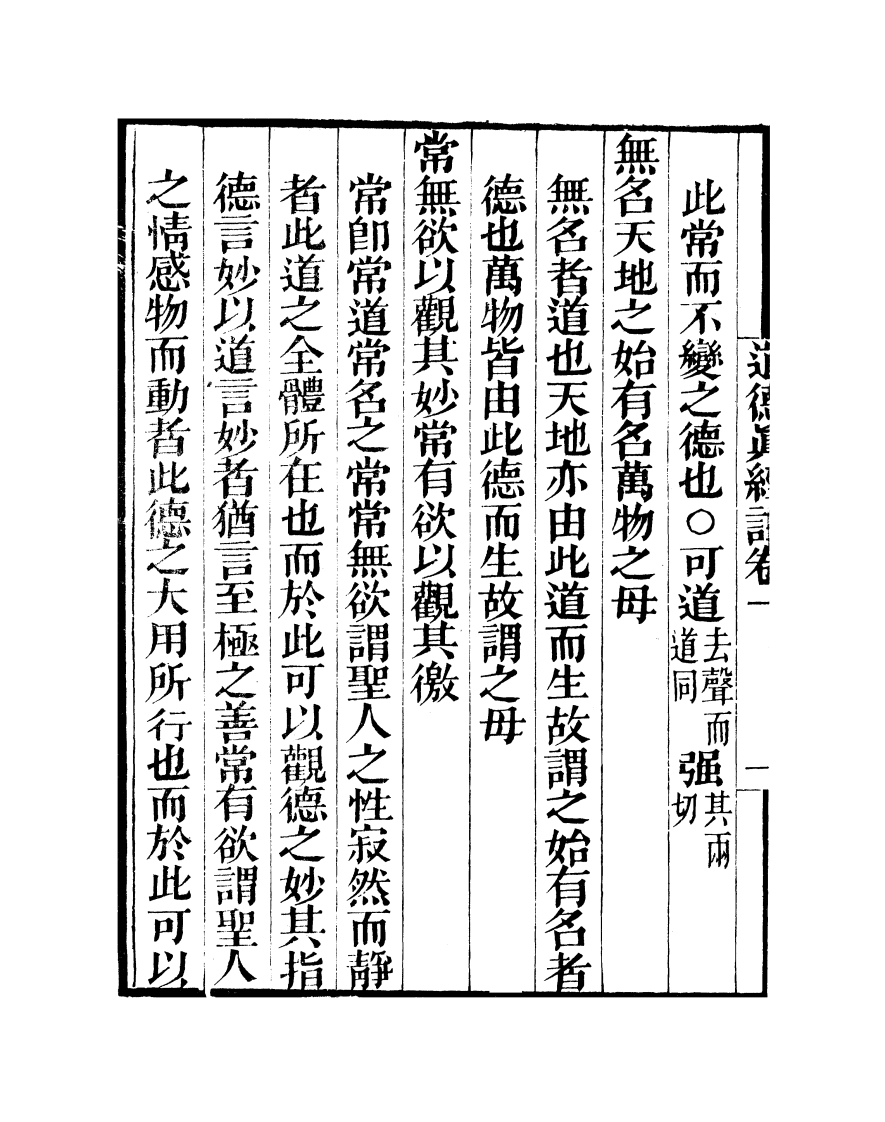 道德眞經註卷一
一
此常而不變之德也○可道去聲而道同强其兩切
無名天地之始有名萬物之母
無名者道也天地亦由此道而生故謂之始有名者
德也萬物皆由此德而生故謂之母
常無欲以觀其妙常有欲以觀其徼
常卽常道常名之常常無欲謂聖人之性寂然而靜
者此道之全體所在也而於此可以觀德之妙其指
德言妙以道言妙者猶言至極之善常有欲謂聖人
之情感物而動者此德之大用所行也而於此可以